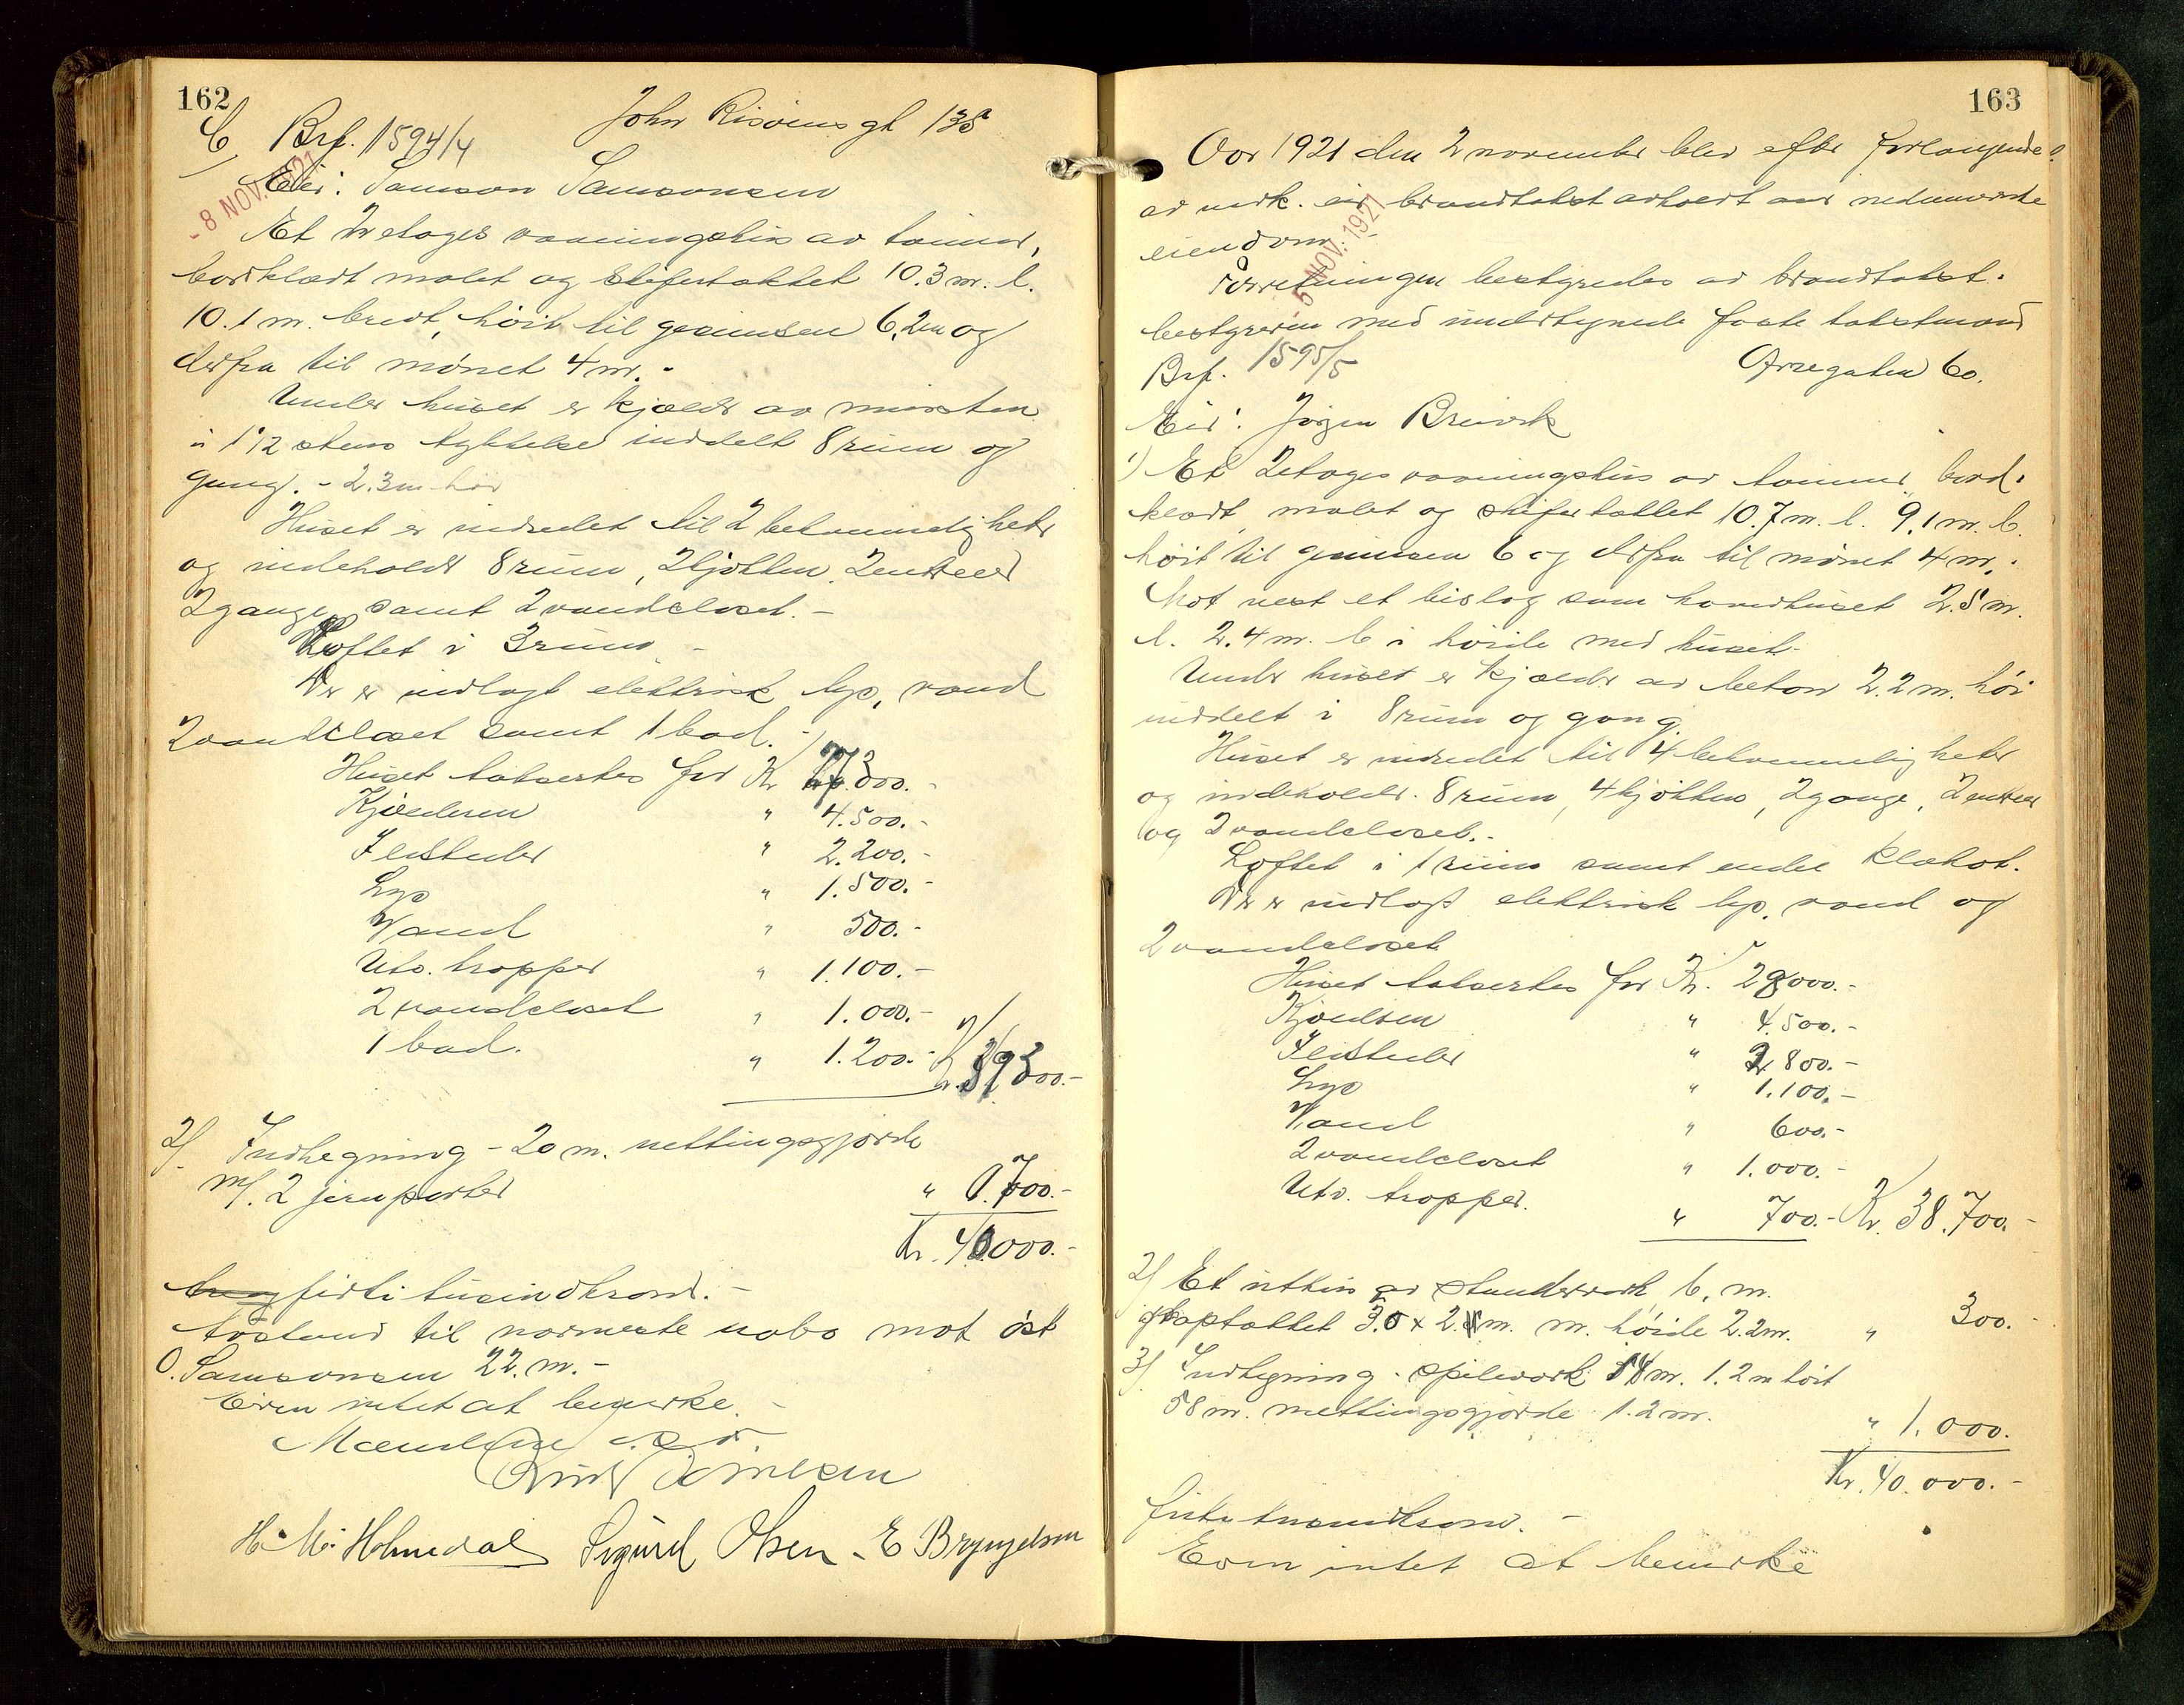 162
C, Brf. 1594/4 John Risöens gt 135
- 8 NOV. 1921
Eier: Samson Samsonsen
Et 2 etages vaaningshus av tømmer,
bordklædt malet og skifertækket 10.3 m. l.
10.1 m. bredt, høit til gesimsen 6,2 m og
derfra til mønet 4 m. -
Under huset er kjælder av mursten
i 1 1/2 stens tykkelse inddelt 8 rum og
gang. - 2.3 m høi
Huset er indredet til 2 bekvemmeligheter
og indeholder 8 rum, 2 kjøkken, 2 entreer
2 gange samt 2 vandcloset. -
Loftet i 3 rum -
Der er indlagt elektrisk lys, vand
2 vandcloset samt 1 bad. -
Huset takseres for Kr 27.300.-
Kjælderen " 4.500.-
Ildsteder " 2.200.-
Lys " 1.500.-
Vand " 500.-
Utv. trapper " 1.100.-
2 vandcloset " 1.000.-
1 bad. " 1.200.- Kr. 39300.-
2/. Indhegning - 20 m. nettingsgjærde
m/. 2 jernporter " 0.700.-
Kr. 40000.-
firti tusindkroner. -
Avstand til nærmeste nabo mot øst
O. Samsonsen 22. m. -
Eieren intet at bemerke. -
H. M. Holmedal Sigurd Olsen - E Bryngelsen
163
Aar 1921 den 2 november blev efter forlangende
av nedn. eier brandtakst avholdt over nedennævnte
eiendom
5 NOV. 1921
Forretningen bestyredes av brandtakst-
bestyreren med undertegnede faste takstmænd
Brf. 1595/5 Arregaten 60.
Eier: Jørgen Breivik
1) Et 2 etages vaaningshus av tømmer bord-
klædt, malet og skifertækket 10.7 m. l. 9.1 m. b.
høit til gesimsen 6 og derfra til mønet 4 m. -
Mot vest et bislag som hovedhuset 2.5 m.
l. 2.4 m. b i høide med huset.
Under huset er kjælder av beton 2.2 m. høi
inddelt i 8 rum og gang.
Huset er indredet til 4 bekvemmeligheter
og indeholder 8 rum, 4 kjøkken, 2 gange, 2 entreer
og 2 vandcloset. -
Loftet i 1 rum samt endel klækot.
Der er indlagt elektrisk lys, vand og
2 vandcloset
Huset takseres for Kr. 28000.-
Kjælderen " 4.500.-
Ildsteder " 2.800.-
Lys " 1.100.-
Vand " 600.-
2 vandcloset " 1.000.-
Utv. trapper. " 700.- Kr. 38.700.-
2/ Et uthus av stenderverk b. m.
skaptækket 3.0 x 2. m. m. høide 2.2 m. " 300.-
3/. Indhegning - spileverk 14 m. 1.2 m høit
58 m. nettingsgjærde 1.2 m. " 1.000.
Kr. 40.000.-
firti tusindkroner. -
Eieren intet at bemerke